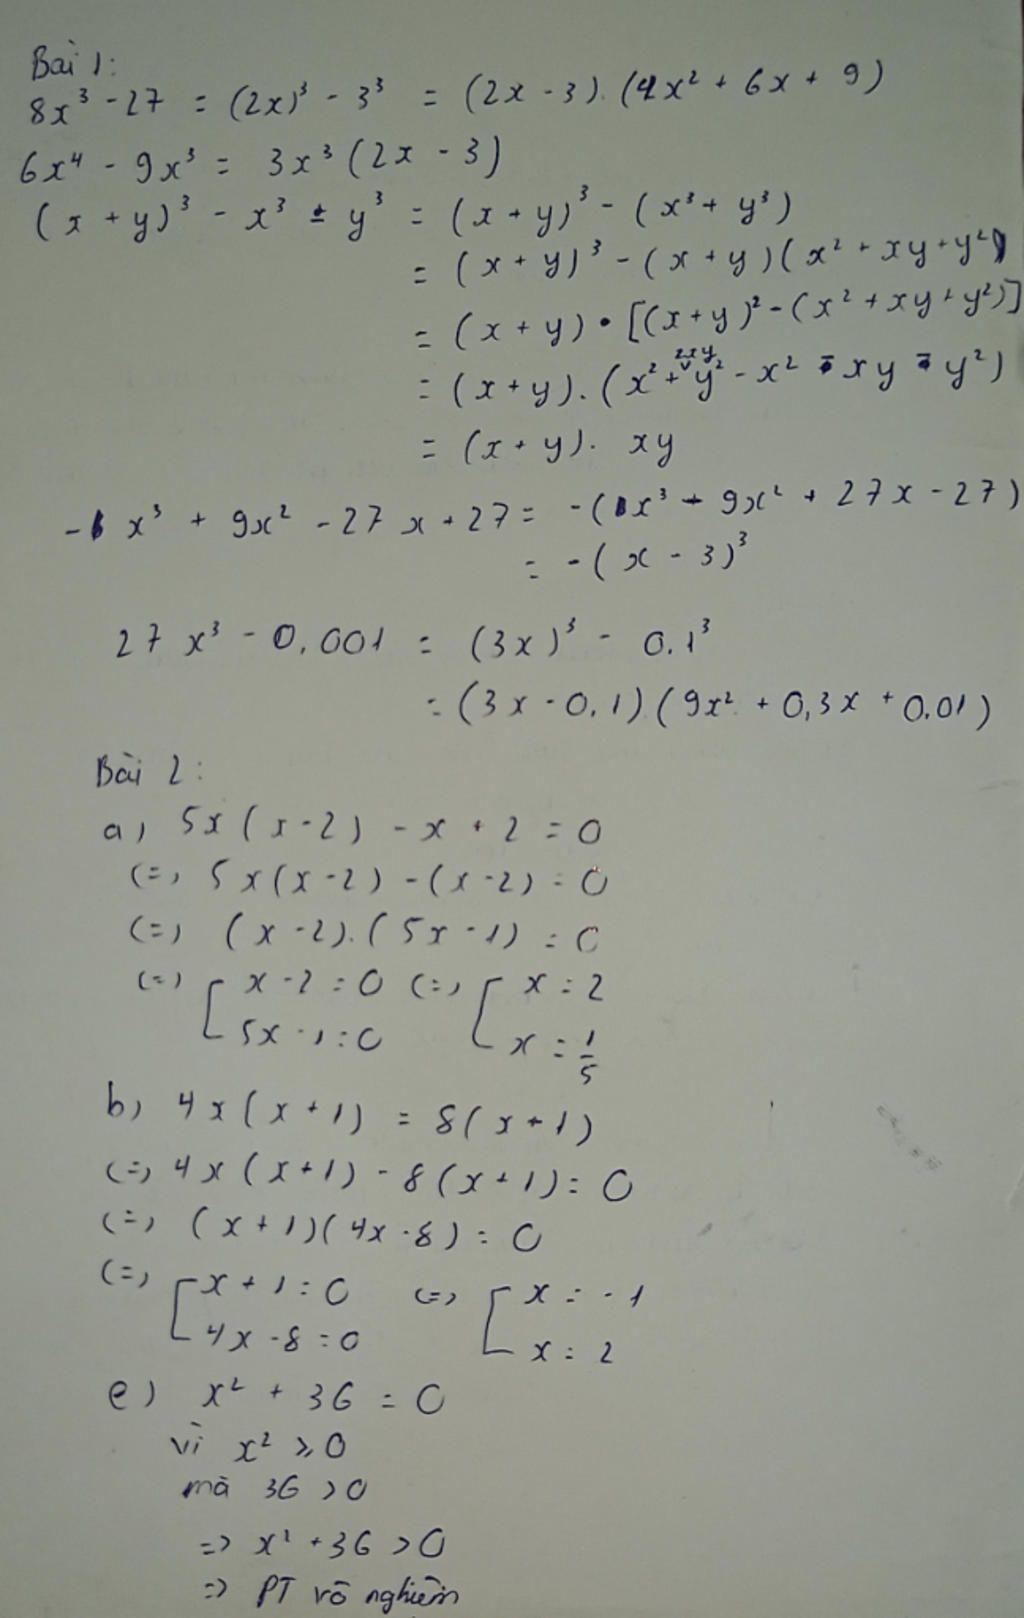 Bài 1:
8x³ - 27 = (2x)³ - 3³ = (2x - 3).(4x² + 6x + 9)
6x⁴ - 9x³ = 3x³(2x - 3)
(x + y)³ - x³ ± y³ = (x + y)³ - (x³ + y³)
= (x + y)³ - (x + y)(x² + xy + y²)
= (x + y) • [(x + y)² - (x² + xy + y²)]
2xy
= (x + y).(x² + y² - x² - xy - y²)
= (x + y). xy
- x³ + 9x² - 27x + 27 = -(x³ + 9x² + 27x - 27)
= -(x - 3)³
27x³ - 0,001 = (3x)³ - 0.1³
= (3x - 0,1).(9x² + 0,3x + 0.01)
Bài 2:
a) 5x(x - 2) - x + 2 = 0
(=) 5x(x - 2) - (x - 2) = 0
(=) (x - 2).(5x - 1) = 0
(=) [ x - 2 = 0 (=) [ x = 2
5x - 1 = 0 x = 1/5
b) 4x(x + 1) = 8(x + 1)
(=) 4x(x + 1) - 8(x + 1) = 0
(=) (x + 1)(4x - 8) = 0
(=) [ x + 1 = 0 (=) [ x = -1
4x - 8 = 0 x = 2
e) x² + 36 = 0
vì x² ⩾ 0
mà 36 > 0
=> x² + 36 > 0
=> PT vô nghiệm